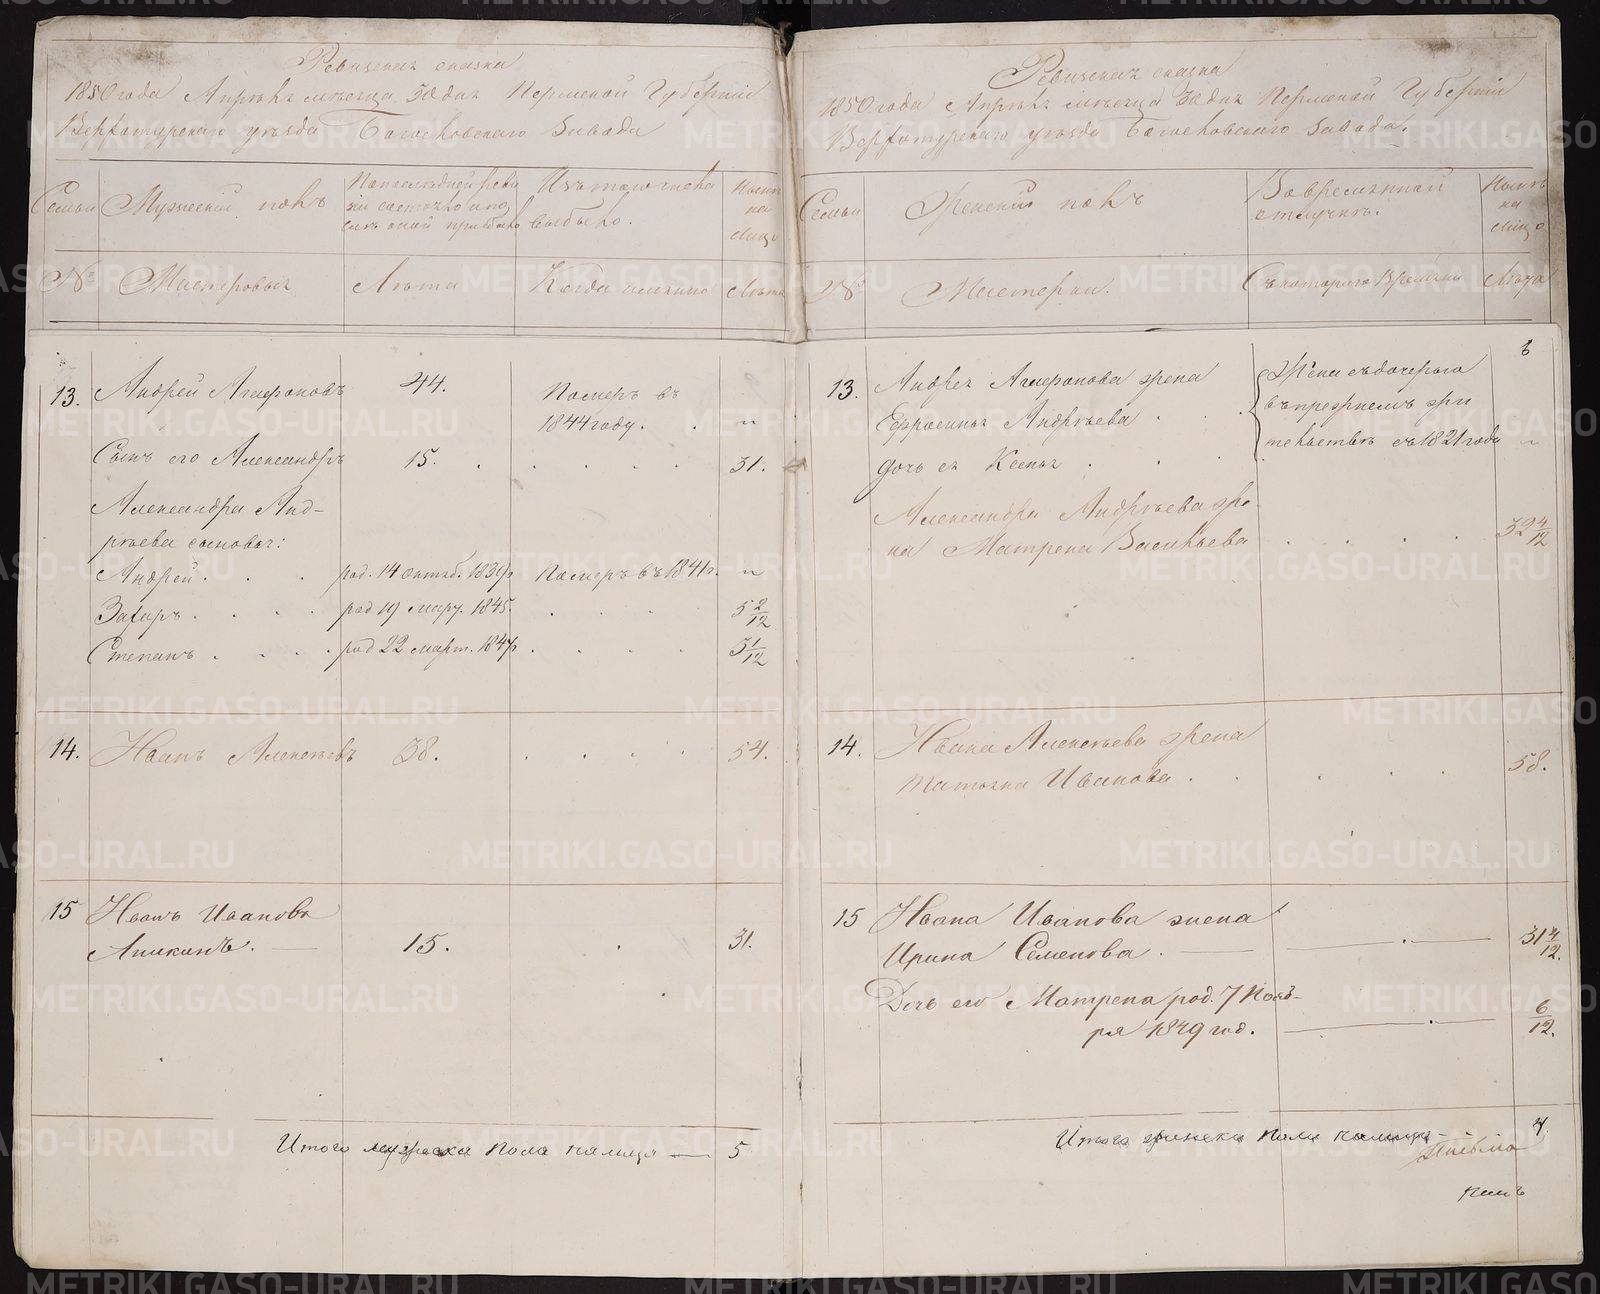 Ревизская сказка
1850 года Апрѣля мѣсяца 30 дня Пермской Губернiи
Верхотурскаго уѣзда Богословскаго Завода
Семьи
Мужескiй полъ
По последней реви
зiи состояло и по
слѣ оной прибыло
Изъ того числа
выбыло.
Нынѣ
на
лицо
№
Мастеровыя
Лѣта
Когда именно
Лѣта
13.
Андрей Агафоновъ
44.
Померъ въ
1844 году.
"
Сынъ его Александръ
15.
31.
Александра Анд-
рѣева сыновья:
Андрей
род. 14 октяб. 1839 г.
Померъ въ 1841 г.
"
Захаръ
род 19 март. 1845.
5 2/12
Степанъ
род 22 март. 1847 г
3 1/12
14.
Иванъ Алексѣевъ
38.
54.
15
Иванъ Ивановъ
Аникинъ.
15.
31.
Итого мужеска пола налицо — 5
Ревизская сказка
1850 года Апрѣля мѣсяца 30 дня Пермской Губернiи
Верхотурскаго уѣзда Богословскаго Завода.
Семьи
Женскiй полъ
Во временной
отлучкѣ.
Нынѣ
на
лицо
№
Мастерки.
Съ котораго времени
Лѣта
6
13.
Андрея Агафонова жена
Ефросинья Андрѣева
дочь ея Ксенья
Жена съ дочерью
въ прежнемъ жи
тельствѣ съ 1821 года
"
Александра Андрѣева же
на Матрена Васильева
32 4/12
14.
Ивана Алексѣева жена
Татьяна Иванова
58.
15
Ивана Иванова жена
Ирина Семенова.
31 4/12.
Дочь его Матрена род. 7 Нояб-
ря 1849 год.
6/12.
Итого женска пола налицо —
4.